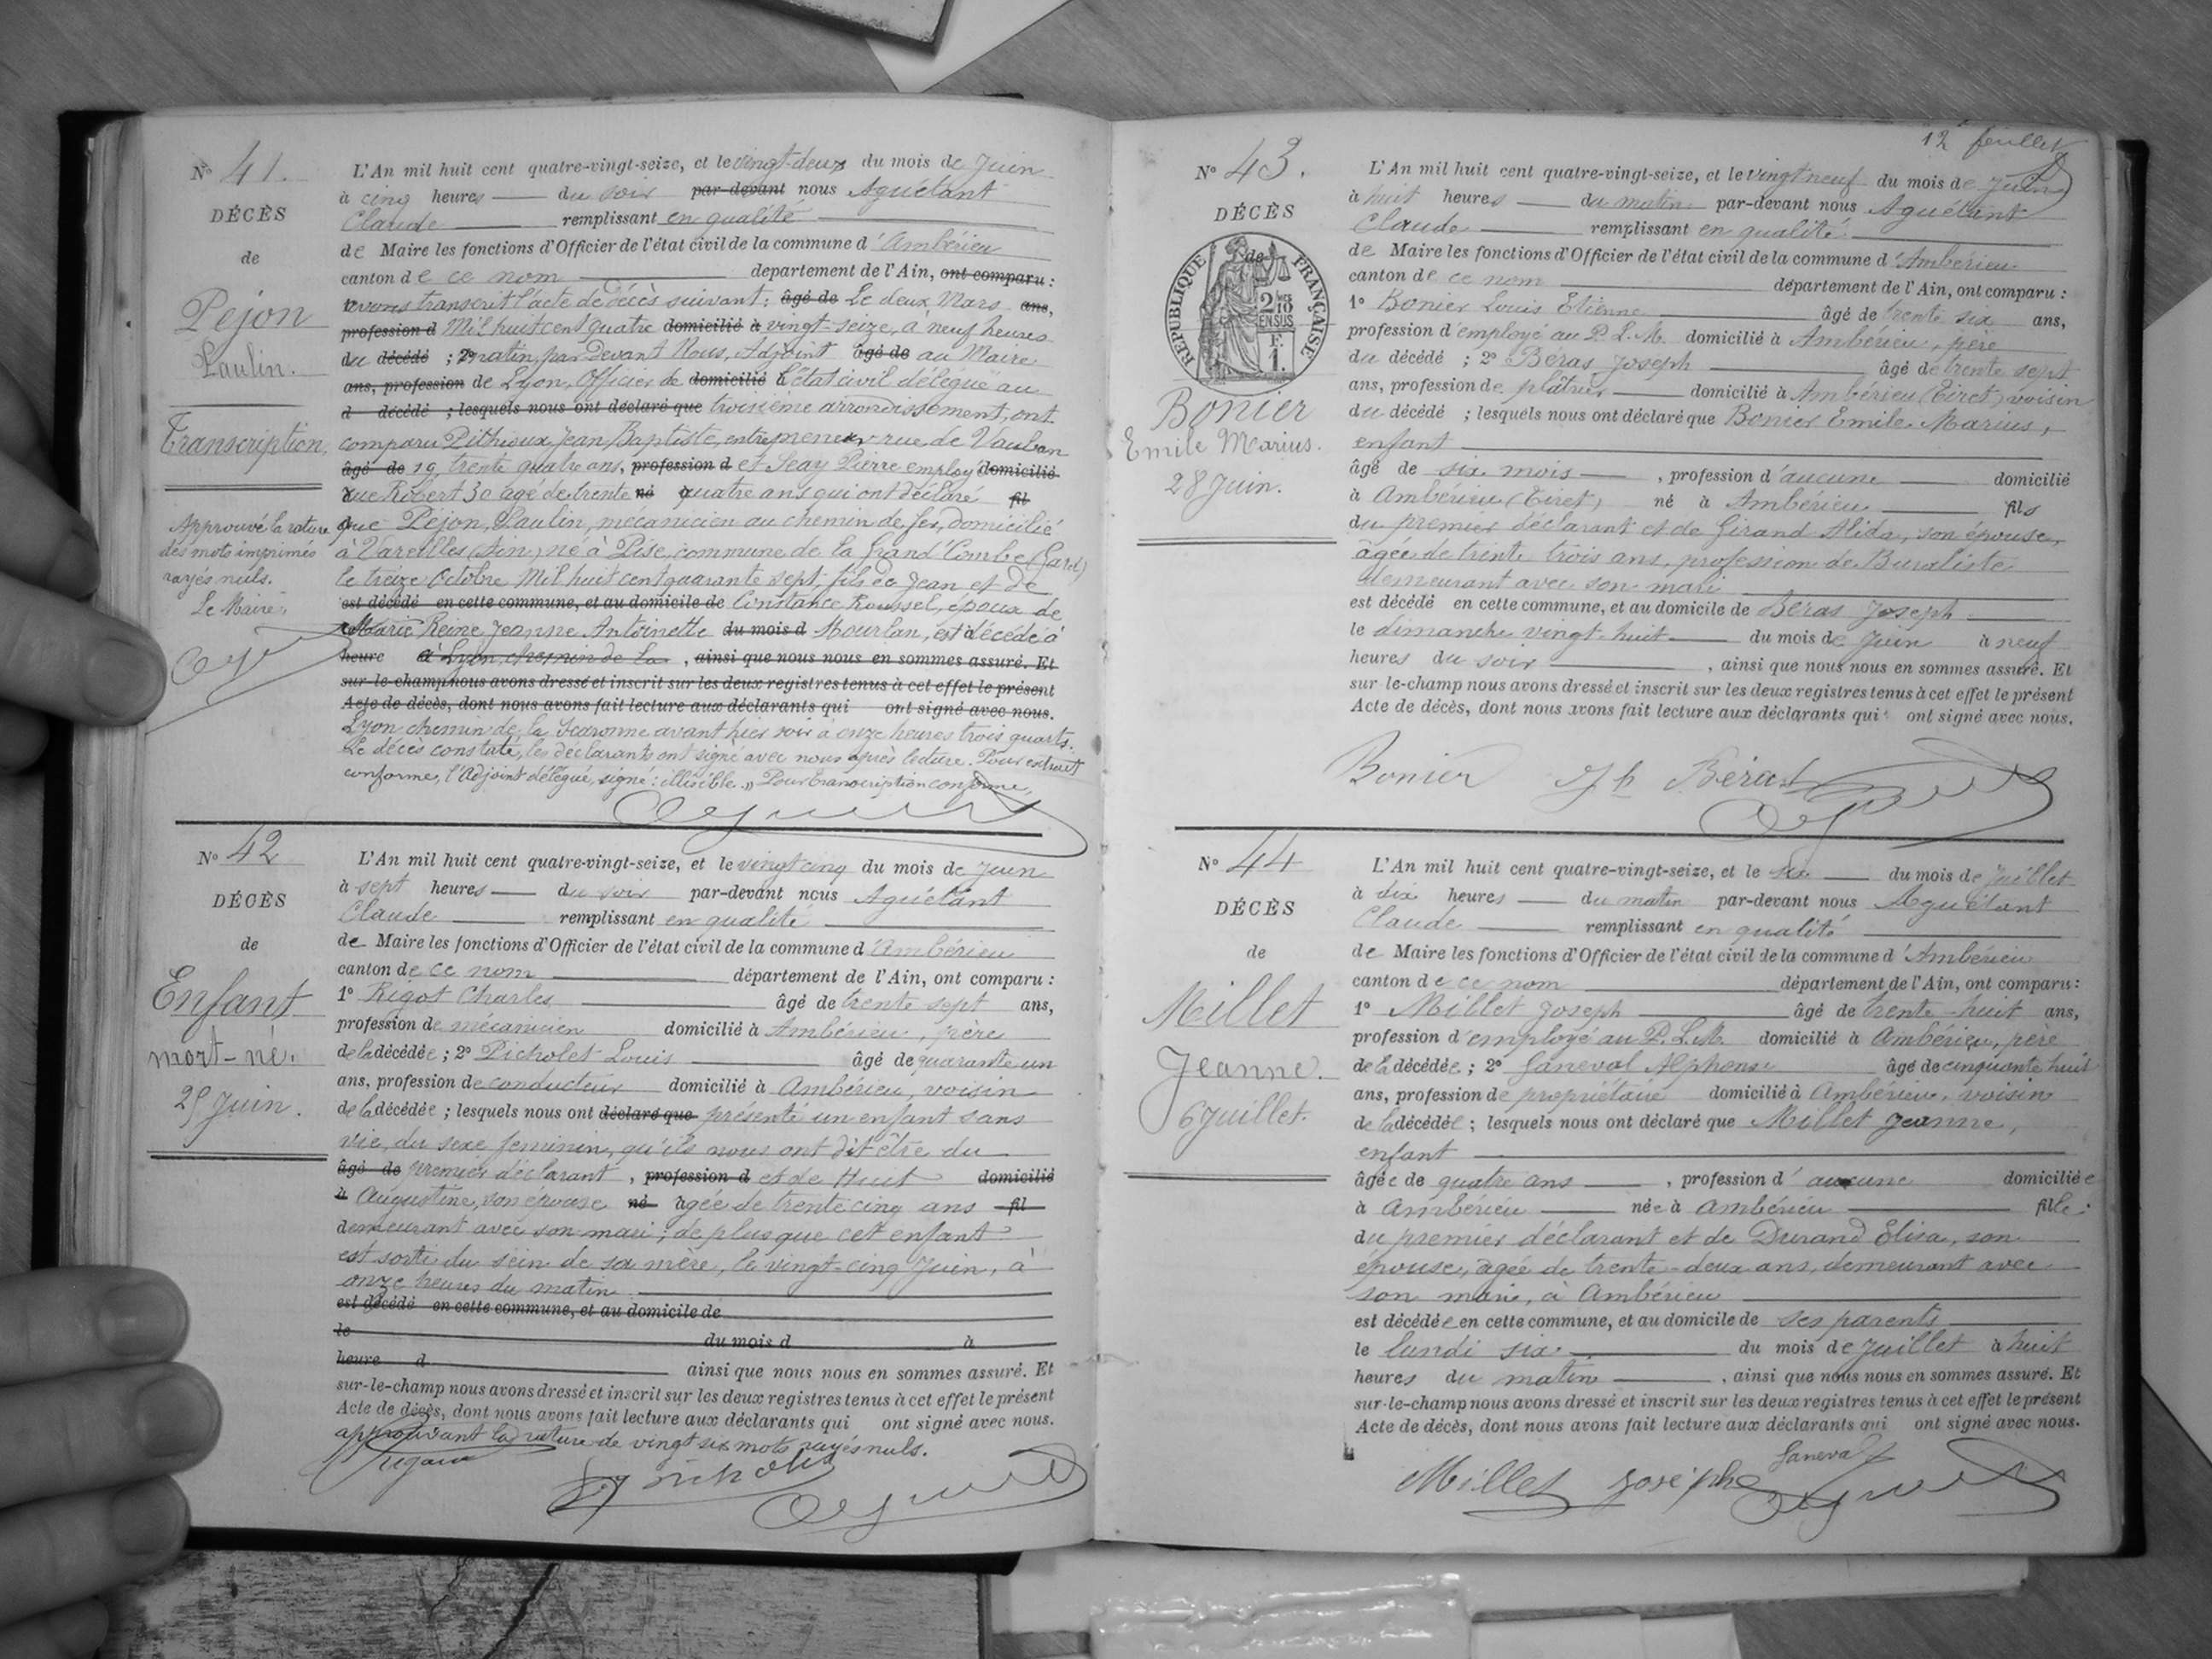 N° 41.
DÉCÈS
de
Péjon
Paulin.
Transcription.
Approuvé la rature
des mots imprimés
rayés nuls.
Le Maire,
L'An mil huit cent quatre-vingt-seize, et le vingt-deux du mois de Juin
à cinq heures du soir par-devant nous Aguétant
Claude remplissant en qualité
de Maire les fonctions d'Officier de l'état civil de la commune d'Ambérieu
canton de ce nom département de l'Ain, ont comparu :
avons transcrit l'acte de décès suivant : âgé de Le deux Mars ans,
profession d Mil huit cent quatre domicilié à vingt-seize, à neuf heures
du décédé ; 2° matin, par Devant Nous, Adjoint âgé de au Maire
ans, profession de Lyon, Officier de domicilié à l'état civil délégué au
d décédé ; lesquels nous ont déclaré que troisième arrondissement, ont
comparu Pithioux Jean Baptiste, entrepreneur rue de Vauban
âgé de 19, trente quatre ans, profession d et Seay Pierre employé domicilié
rue Robert 30 âgé de trente né quatre ans qui ont déclaré fil
que Péjon, Paulin, mécanicien au chemin de fer, domicilié
à Vareilles (Ain) né à Pise, commune de la Grand'Combe (Gard)
le treize Octobre Mil huit cent quarante sept, fils de Jean et de
est décédé en cette commune, et au domicile de Constance Roussel, époux de
Marie Reine Jeanne Antoinette du mois d Mourlan, est décédé à
heure à Lyon, chemin de la , ainsi que nous nous en sommes assuré. Et
sur-le-champ nous avons dressé et inscrit sur les deux registres tenus à cet effet le présent
Acte de décès, dont nous avons fait lecture aux déclarants qui ont signé avec nous.
Lyon chemin de la Scaronne avant hier soir à onze heures trois quarts.
Le décès constaté, les déclarants ont signé avec nous après lecture. Pour extrait
conforme, l'Adjoint délégué, signé : illisible. » Pour transcription conforme,
N° 42
DÉCÈS
de
Enfant
mort-né.
25 Juin.
L'An mil huit cent quatre-vingt-seize, et le vingt cinq du mois de Juin
à sept heures du soir par-devant nous Aguétant
Claude remplissant en qualité
de Maire les fonctions d'Officier de l'état civil de la commune d'Ambérieu
canton de ce nom département de l'Ain, ont comparu :
1° Rigot Charles âgé de trente sept ans,
profession de mécanicien domicilié à Ambérieu, père
de la décédée ; 2° Picholet Louis âgé de quarante un
ans, profession de conducteur domicilié à Ambérieu, voisin
de la décédée ; lesquels nous ont déclaré que présenté un enfant sans
vie, du sexe féminin, qu'ils nous ont dit être du
âgé de premier déclarant , profession d et de Huit domicilié
à Augustine, son épouse né âgée de trente cinq ans fil
demeurant avec son mari ; de plus que cet enfant
est sorti du sein de sa mère, le vingt-cinq Juin, à
onze heures du matin
est décédé en cette commune, et au domicile de
le du mois d à
heure d ainsi que nous nous en sommes assuré. Et
sur-le-champ nous avons dressé et inscrit sur les deux registres tenus à cet effet le présent
Acte de décès, dont nous avons fait lecture aux déclarants qui ont signé avec nous.
approuvant la rature de vingt six mots rayés nuls.
12e feuillet
N° 43.
DÉCÈS
de
RÉPUBLIQUE FRANÇAISE
2/10 EN SUS
F. 1.
Bonier
Emile Marius.
28 Juin.
L'An mil huit cent quatre-vingt-seize, et le vingt neuf du mois de Juin
à huit heures du matin par-devant nous Aguétant
Claude remplissant en qualité
de Maire les fonctions d'Officier de l'état civil de la commune d'Ambérieu
canton de ce nom département de l'Ain, ont comparu :
1° Bonier Louis Etienne âgé de trente six ans,
profession d'employé au P. L. M. domicilié à Ambérieu, père
du décédé ; 2° Béras Joseph âgé de trente sept
ans, profession de plâtrier domicilié à Ambérieu (Tiret) voisin
du décédé ; lesquels nous ont déclaré que Bonier Emile Marius,
enfant
âgé de six mois , profession d'aucune domicilié
à Ambérieu (Tiret) né à Ambérieu fils
du premier déclarant et de Girand Alida, son épouse,
âgée de trente trois ans, profession de Buraliste
demeurant avec son mari
est décédé en cette commune, et au domicile de Béras Joseph
le dimanche vingt-huit du mois de Juin à neuf
heures du soir , ainsi que nous nous en sommes assuré. Et
sur-le-champ nous avons dressé et inscrit sur les deux registres tenus à cet effet le présent
Acte de décès, dont nous avons fait lecture aux déclarants qui ont signé avec nous.
Bonier Jh Béras
N° 44
DÉCÈS
de
Millet
Jeanne.
6 Juillet.
L'An mil huit cent quatre-vingt-seize, et le six du mois de Juillet
à dix heures du matin par-devant nous Aguétant
Claude remplissant en qualité
de Maire les fonctions d'Officier de l'état civil de la commune d'Ambérieu
canton de ce nom département de l'Ain, ont comparu :
1° Millet Joseph âgé de trente-huit ans,
profession d'employé au P. L. M. domicilié à Ambérieu, père
de la décédée ; 2° Janeval Alphonse âgé de cinquante huit
ans, profession de propriétaire domicilié à Ambérieu, voisin
de la décédée ; lesquels nous ont déclaré que Millet Jeanne,
enfant
âgée de quatre ans , profession d'aucune domiciliée
à Ambérieu née à Ambérieu fille
du premier déclarant et de Durand Elisa, son
épouse, âgée de trente-deux ans, demeurant avec
son mari, à Ambérieu
est décédée en cette commune, et au domicile de ses parents
le lundi six du mois de Juillet à huit
heures du matin , ainsi que nous nous en sommes assuré. Et
sur-le-champ nous avons dressé et inscrit sur les deux registres tenus à cet effet le présent
Acte de décès, dont nous avons fait lecture aux déclarants qui ont signé avec nous.
Janeval
Millet Josèphe